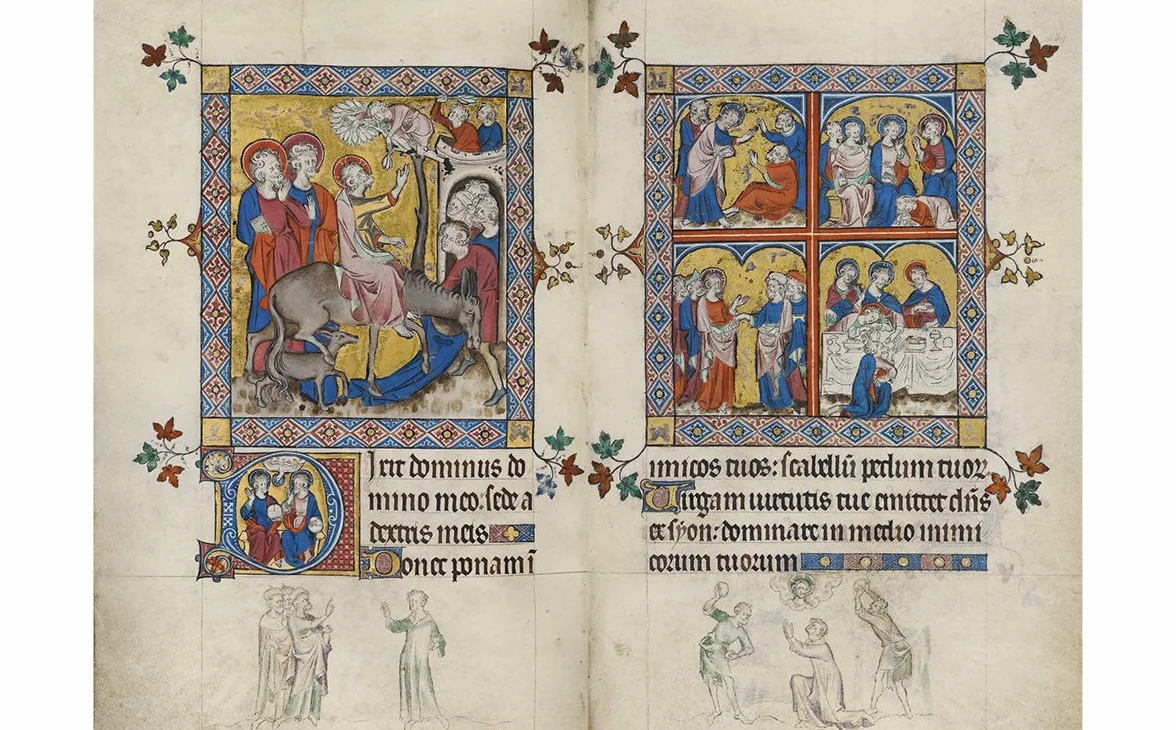 Dixit dominus do
mino meo: sede a
dextris meis
Donec ponam ī
imicos tuos: scabellū pedum tuoꝝ
Virgam virtutis tue emittet dn̄s
ex syon: dominare in medio inimi
corum tuorum